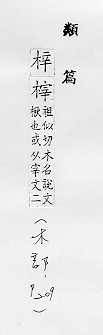 類篇
梓榟祖似切木名說文楸也或从宰文二(木部.